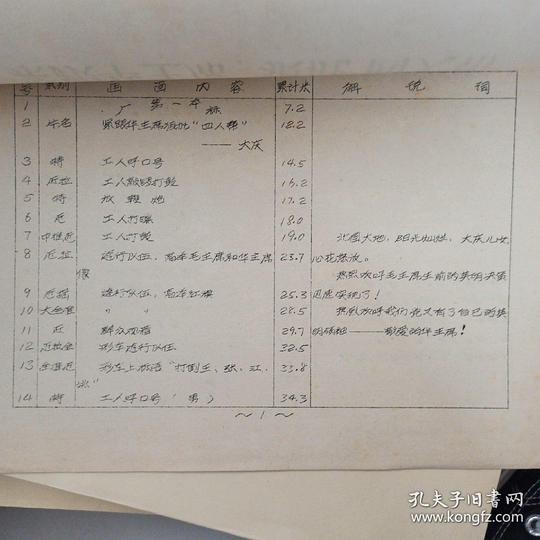 号 景别 画面内容 累计尺 解说词
第一本
1 厂标 7.2
2 字色 紧跟华主席狠批“四人帮” 12.2
——大庆
3 特 工人呼口号 14.5
4 近拉 工人敲锣打鼓 15.2
5 特 放鞭炮 17.2
6 近 工人打锣 18.0
7 中推近 工人打鼓 19.0 北国大地,阳光灿烂,大庆儿女
8 近拉 游行队伍,高举毛主席和华主席 23.7 心花怒放。
像 热烈欢呼毛主席生前的英明决策
9 近摇 游行队伍,高举红旗 25.3 迅速实现了!
10 大全推 〃 〃 28.5 热烈欢呼我们党又有了自己的英
11 近 群众 29.7 明领袖——敬爱的华主席!
12 近拉全 彩车游行队伍 32.5
13 全推近 彩车上标语“打倒王、张、江、 33.8
姚”
14 特 工人呼口号(男) 34.3
~1~
孔夫子旧书网
www.kongfz.com